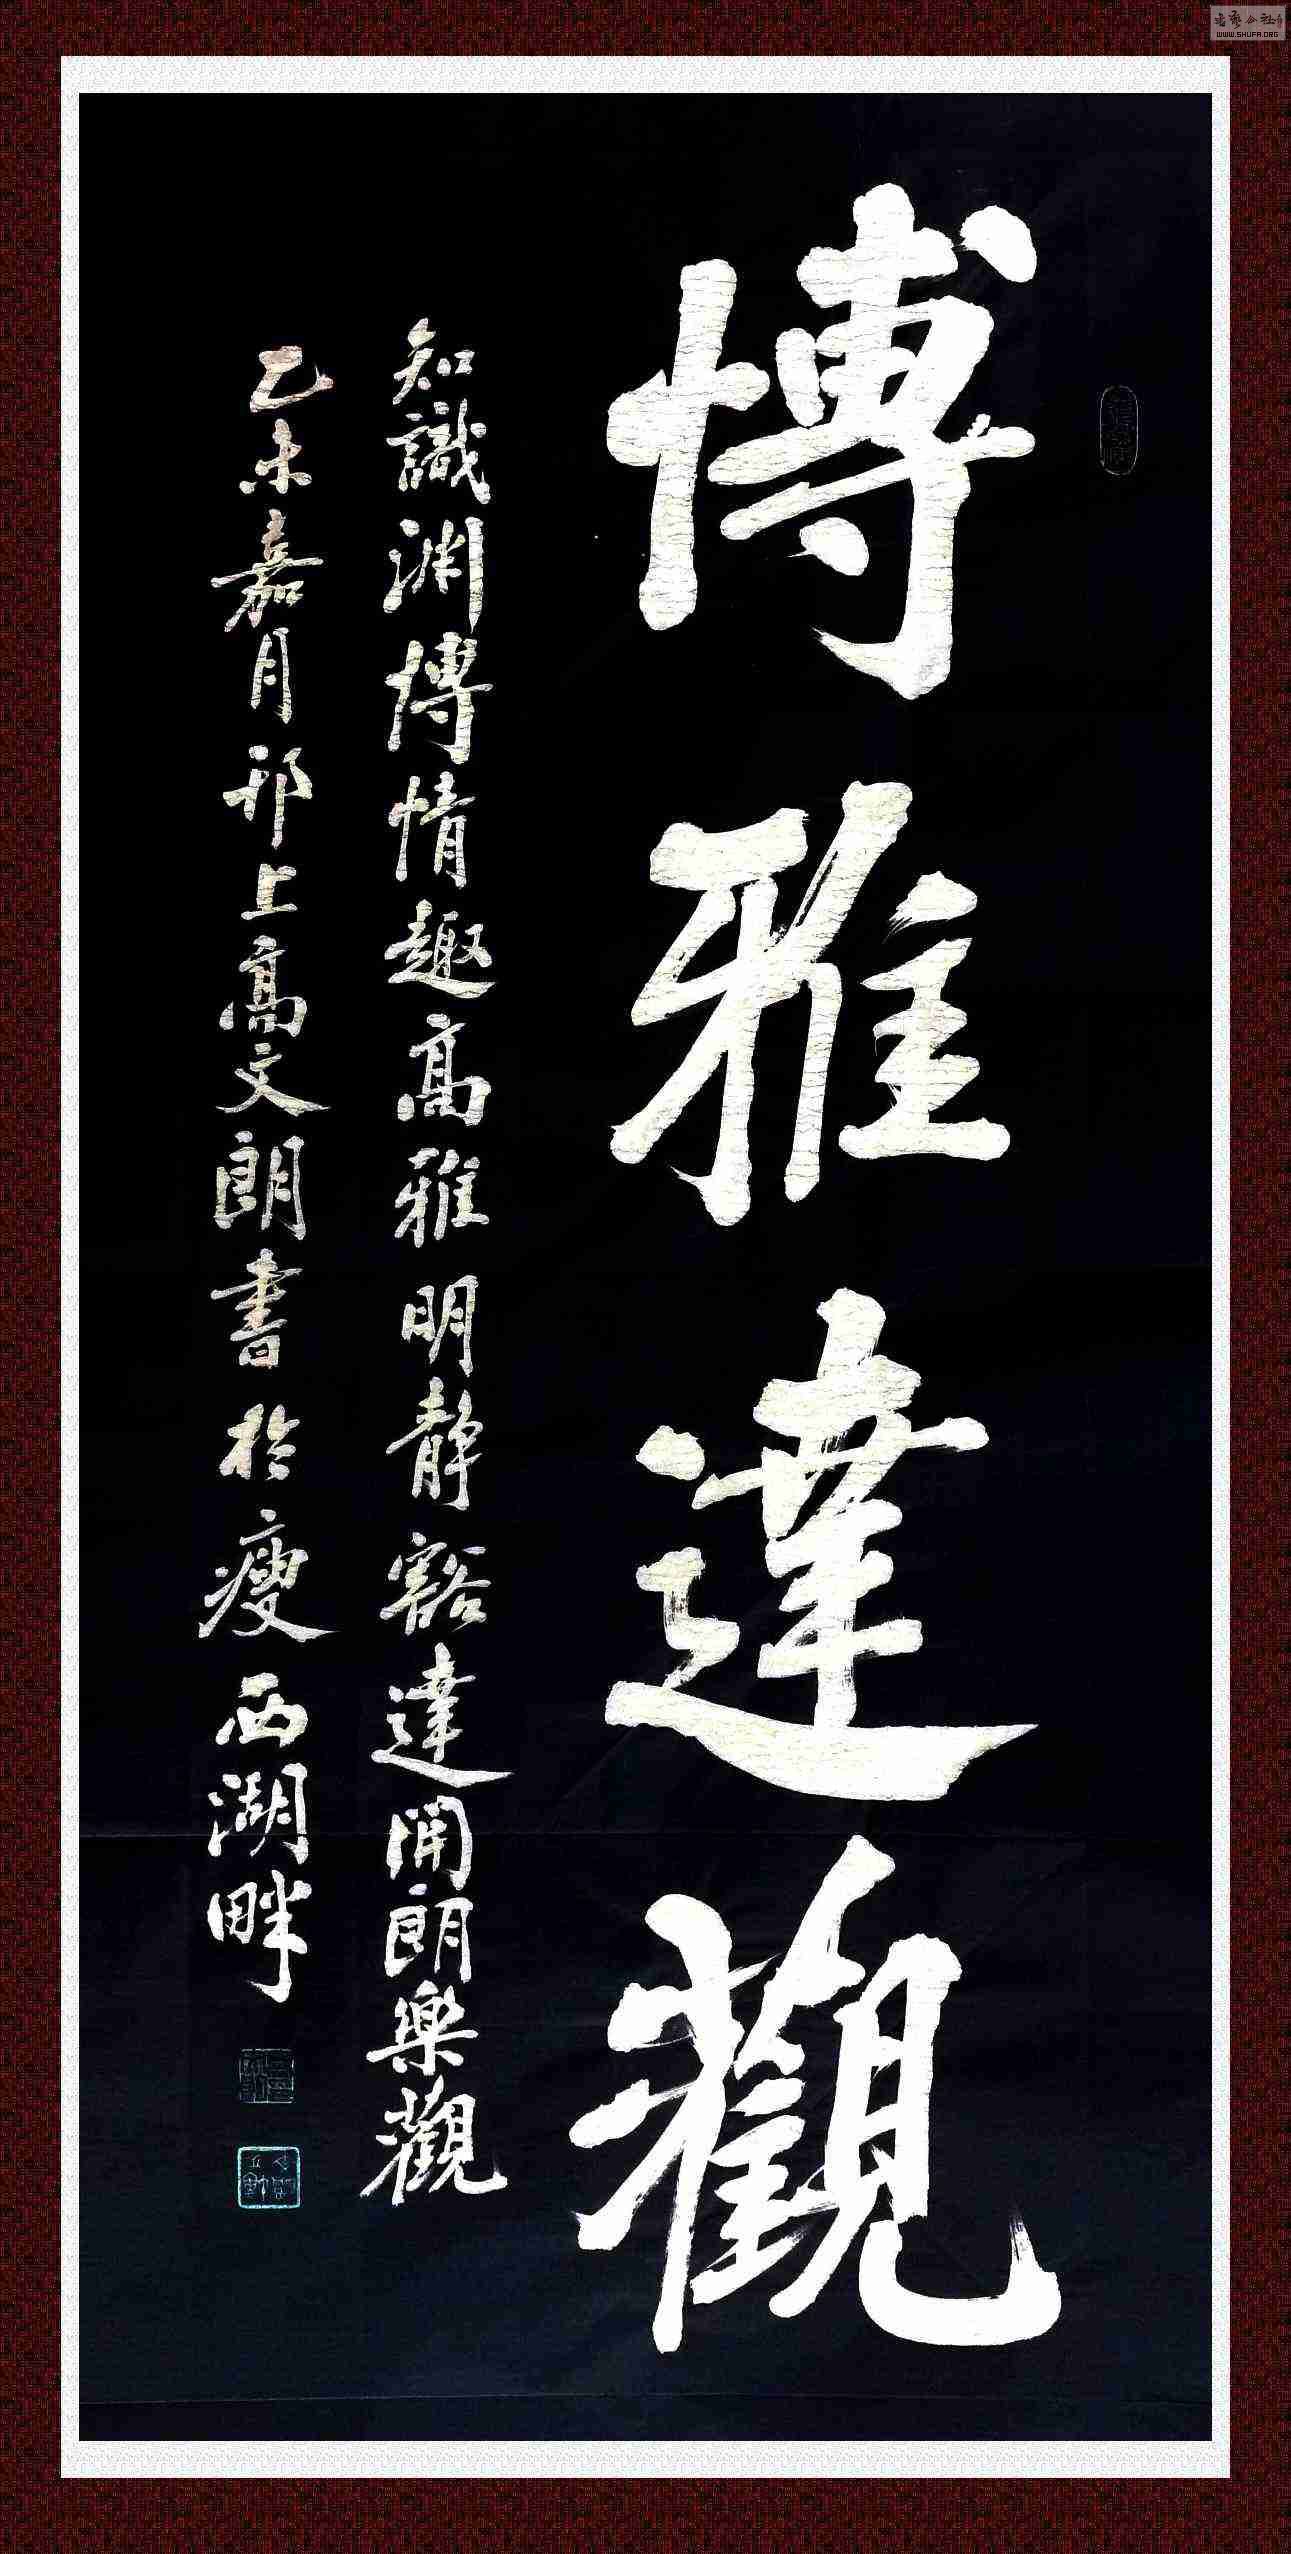 博雅達觀
知識渊博情趣高雅明静豁達開朗樂觀
乙未嘉月邗上高文朗書於瘦西湖畔
WWW.SHUFA.ORG